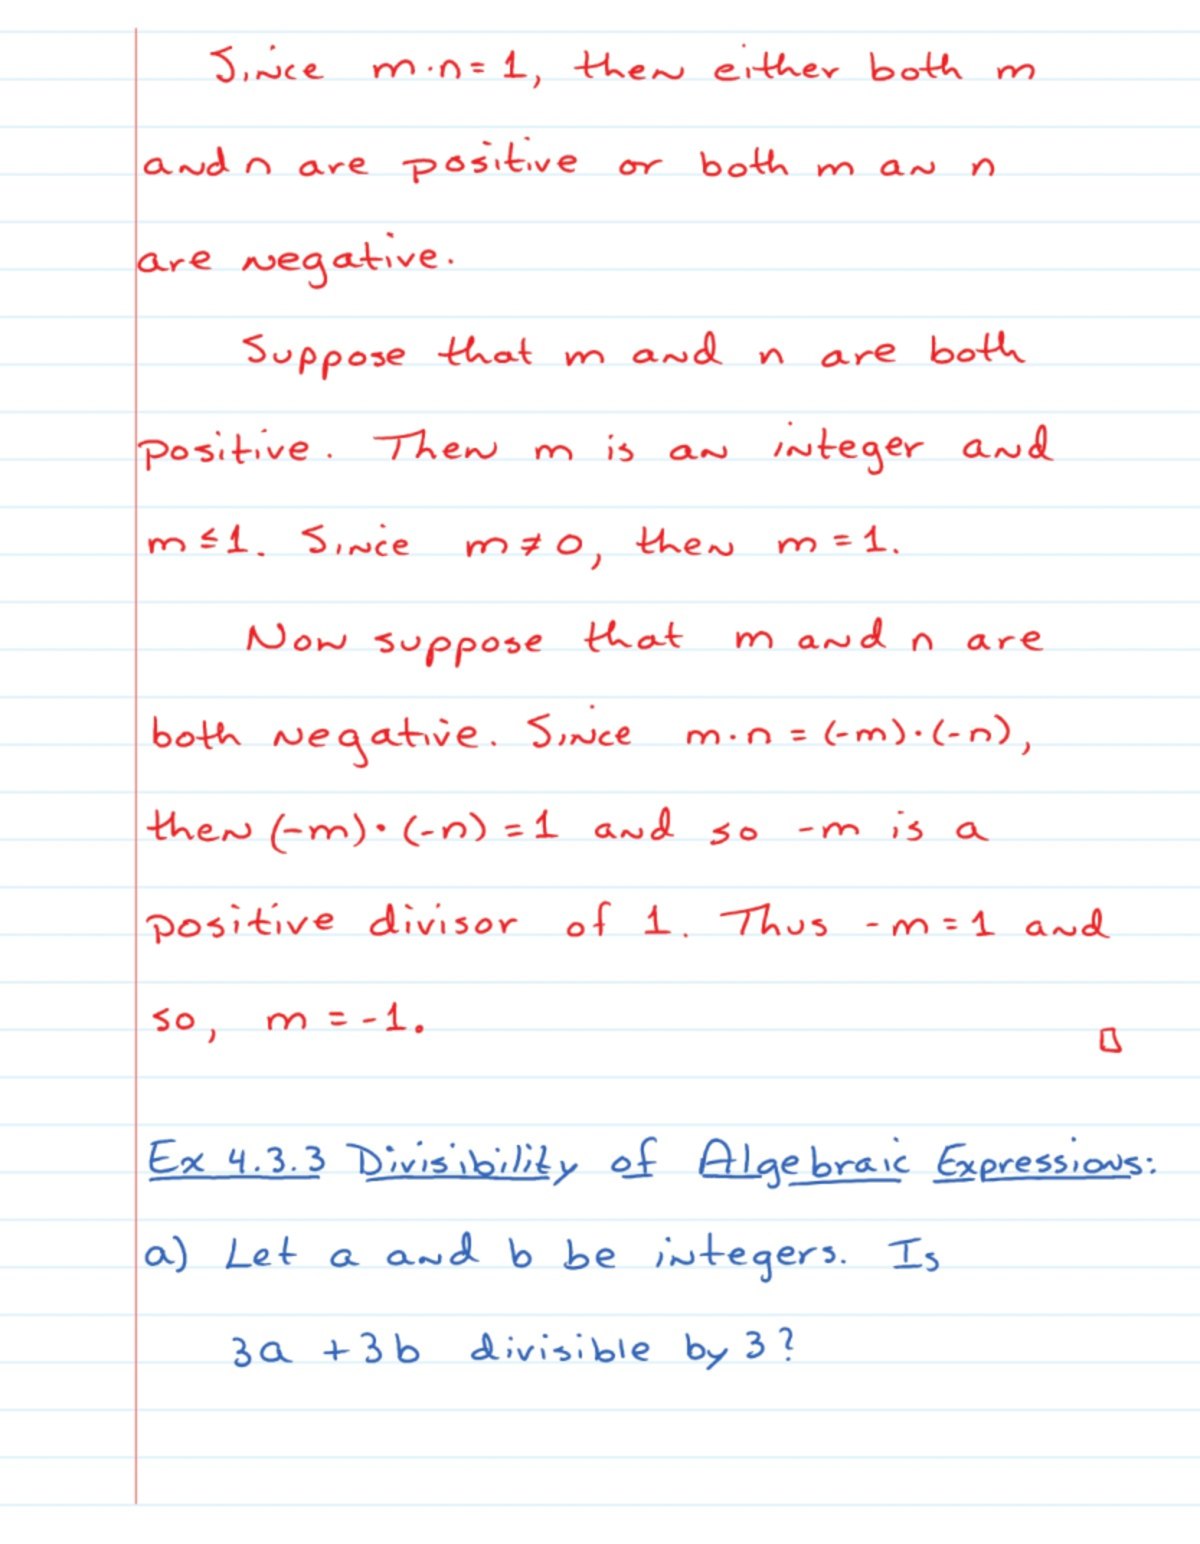 Since m·n=1, then either both m
and n are positive or both m an n
are negative.
Suppose that m and n are both
positive. Then m is an integer and
m≤1. Since m≠0, then m=1.
Now suppose that m and n are
both negative. Since m·n=(-m)·(-n),
then (-m)·(-n)=1 and so -m is a
positive divisor of 1. Thus -m=1 and
so, m=-1.
□
Ex 4.3.3 Divisibility of Algebraic Expressions:
a) Let a and b be integers. Is
3a+3b divisible by 3?